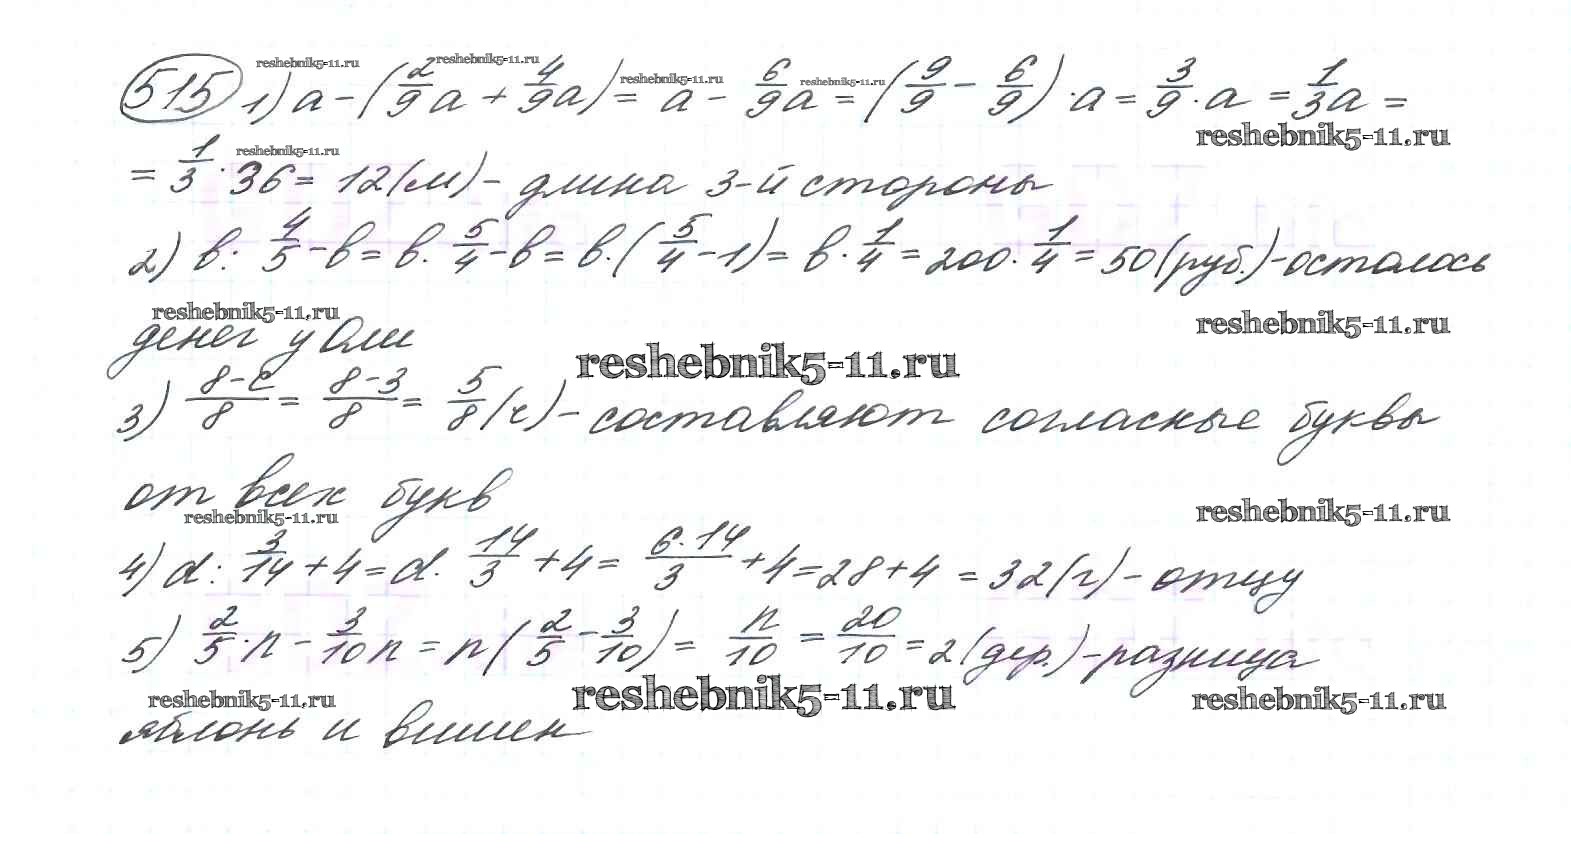 reshebnik5-11.ru reshebnik5-11.ru reshebnik5-11.ru reshebnik5-11.ru
515 1) a - (2/9 a + 4/9 a) = a - 6/9 a = (9/9 - 6/9) · a = 3/9 · a = 1/3 a =
reshebnik5-11.ru reshebnik5-11.ru
= 1/3 · 36 = 12 (м) - длина 3-й стороны
2) в : 4/5 - в = в · 5/4 - в = в · (5/4 - 1) = в · 1/4 = 200 · 1/4 = 50 (руб.) - осталось
reshebnik5-11.ru reshebnik5-11.ru
денег у Оли
reshebnik5-11.ru
3) 8-с/8 = 8-3/8 = 5/8 (ч) - составляют согласные буквы
от всех букв
reshebnik5-11.ru reshebnik5-11.ru
4) d : 3/14 + 4 = d · 14/3 + 4 = 6·14/3 + 4 = 28 + 4 = 32 (г) - отцу
5) 2/5 · n - 3/10 n = n (2/5 - 3/10) = n/10 = 20/10 = 2 (дер.) - разница
reshebnik5-11.ru reshebnik5-11.ru reshebnik5-11.ru
яблонь и вишен